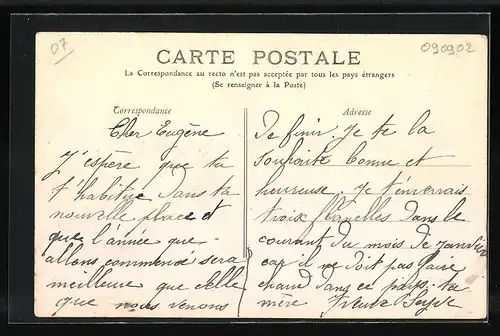 07
090902
CARTE POSTALE
La Correspondance au recto n'est pas acceptée par tous les pays étrangers
(Se renseigner à la Poste)
Correspondance
Cher Eugène
J'espère que tu
t'habitue dans ta
nouvelle place et
que l'année que
allons commencé sera
meilleure que celle
que nous venons
Adresse
De finir. Je te la
souhaite bonne et
heureuse. Je t'enverrais
trois flanelles dans le
courant du mois de janvier
car il ne doit pas faire
chaud dans ce pays. ta
mère